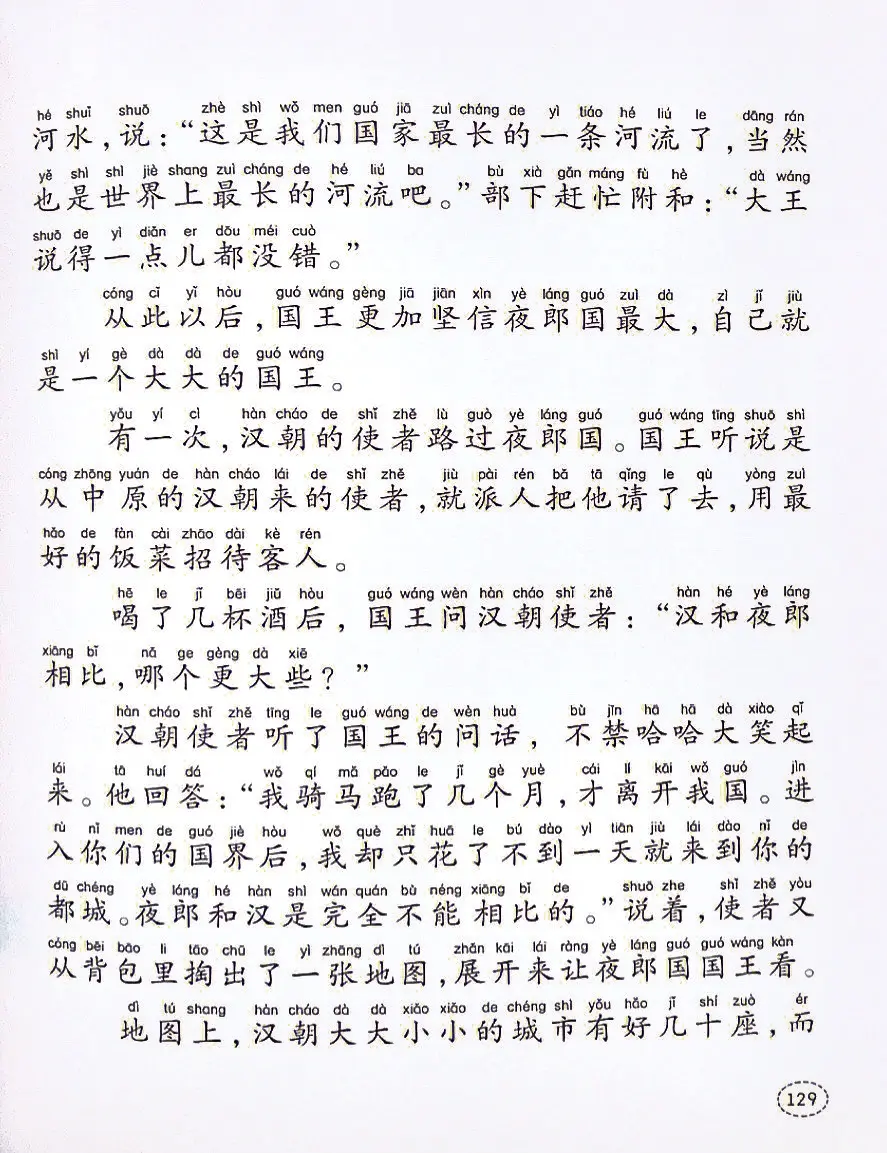 hé shuǐ shuō zhè shì wǒ men guó jiā zuì cháng de yì tiáo hé liú le dāng rán
河水，说：“这是我们国家最长的一条河流了，当然
yě shì shì jiè shang zuì cháng de hé liú ba bù xià gǎn máng fù hè dà wáng
也是世界上最长的河流吧。”部下赶忙附和：“大王
shuō de yì diǎn er dōu méi cuò
说得一点儿都没错。”
cóng cǐ yǐ hòu guó wáng gèng jiā jiān xìn yè láng guó zuì dà zì jǐ jiù
从此以后，国王更加坚信夜郎国最大，自己就
shì yí gè dà dà de guó wáng
是一个大大的国王。
yǒu yí cì hàn cháo de shǐ zhě lù guò yè láng guó guó wáng tīng shuō shì
有一次，汉朝的使者路过夜郎国。国王听说是
cóng zhōng yuán de hàn cháo lái de shǐ zhě jiù pài rén bǎ tā qǐng le qù yòng zuì
从中原的汉朝来的使者，就派人把他请了去，用最
hǎo de fàn cài zhāo dài kè rén
好的饭菜招待客人。
hē le jǐ bēi jiǔ hòu guó wáng wèn hàn cháo shǐ zhě hàn hé yè láng
喝了几杯酒后，国王问汉朝使者：“汉和夜郎
xiāng bǐ nǎ ge gèng dà xiē
相比，哪个更大些？”
hàn cháo shǐ zhě tīng le guó wáng de wèn huà bù jīn hā hā dà xiào qǐ
汉朝使者听了国王的问话，不禁哈哈大笑起
lái tā huí dá wǒ qí mǎ pǎo le jǐ gè yuè cái lí kāi wǒ guó jìn
来。他回答：“我骑马跑了几个月，才离开我国。进
rù nǐ men de guó jiè hòu wǒ què zhǐ huā le bú dào yì tiān jiù lái dào nǐ de
入你们的国界后，我却只花了不到一天就来到你的
dū chéng yè láng hé hàn shì wán quán bù néng xiāng bǐ de shuō zhe shǐ zhě yòu
都城。夜郎和汉是完全不能相比的。”说着，使者又
cóng bēi bāo li tāo chū le yì zhāng dì tú zhǎn kāi lái ràng yè láng guó guó wáng kàn
从背包里掏出了一张地图，展开来让夜郎国国王看。
dì tú shang hàn cháo dà dà xiǎo xiǎo de chéng shì yǒu hǎo jǐ shí zuò ér
地图上，汉朝大大小小的城市有好几十座，而
129